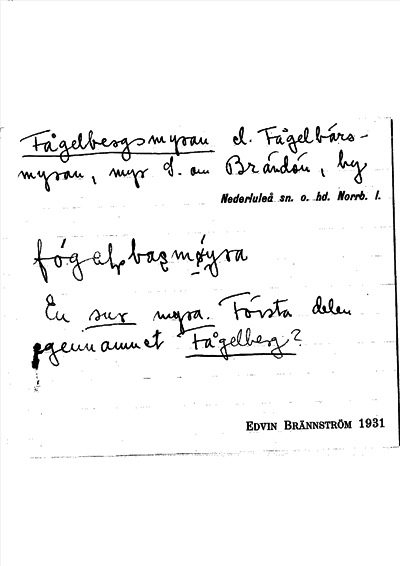 Fågelbergsmyran el. Fågelbärs-
myran, myr S. om Brändön, by
Nederluleå sn. o. hd. Norrb. l.
En sur myra. Första delen
egennamnet Fågelberg?
EDVIN BRÄNNSTRÖM 1931